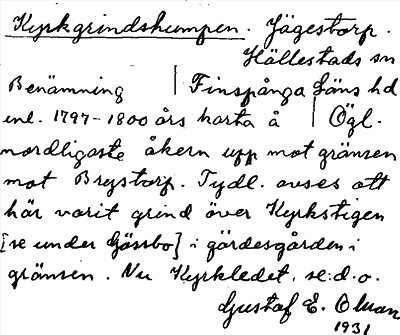 Kyrkgrindshumpen. Jägestorp.
Hällestads sn
Benämning | Finspånga läns hd
enl. 1797-1800 års karta å | Ögl.
nordligaste åkern upp mot gränsen
mot Brystorp. Tydl. avses att
här varit grind över Kyrkstigen
[se under Gössbo] i gärdesgården i
gränsen. Nu Kyrkledet. se: d. o.
Gustaf E. Olman
1931